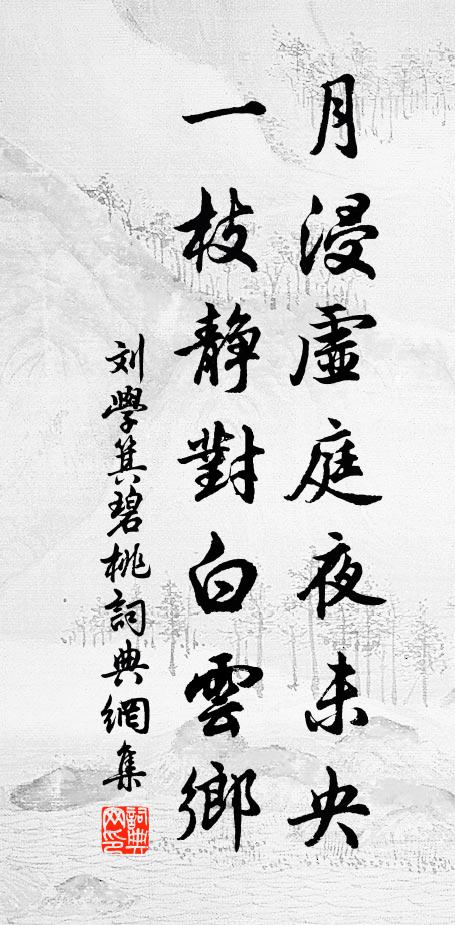 月浸虛庭夜未央
一枝靜對白雲鄉
刘學箕碧桃詞典網集
詞典网印